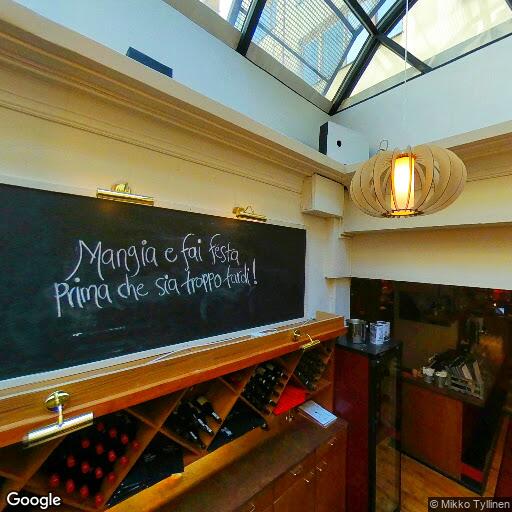 Mangia e fai festa
prima che sia troppo tardi!
Google
© Mikko Tyllinen